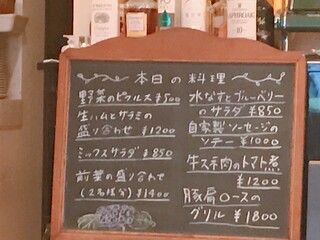 本日の料理
野菜のピクルス ¥500
生ハムとサラミの
盛り合わせ ¥1200
ミックスサラダ ¥850
前菜の盛り合わせ
(2名様分) ¥1400
水なすとブルーベリー
のサラダ ¥850
自家製ソーセージの
ソテー ¥1000
牛スネ肉のトマト煮
¥1200
豚肩ロースの
グリル ¥1800